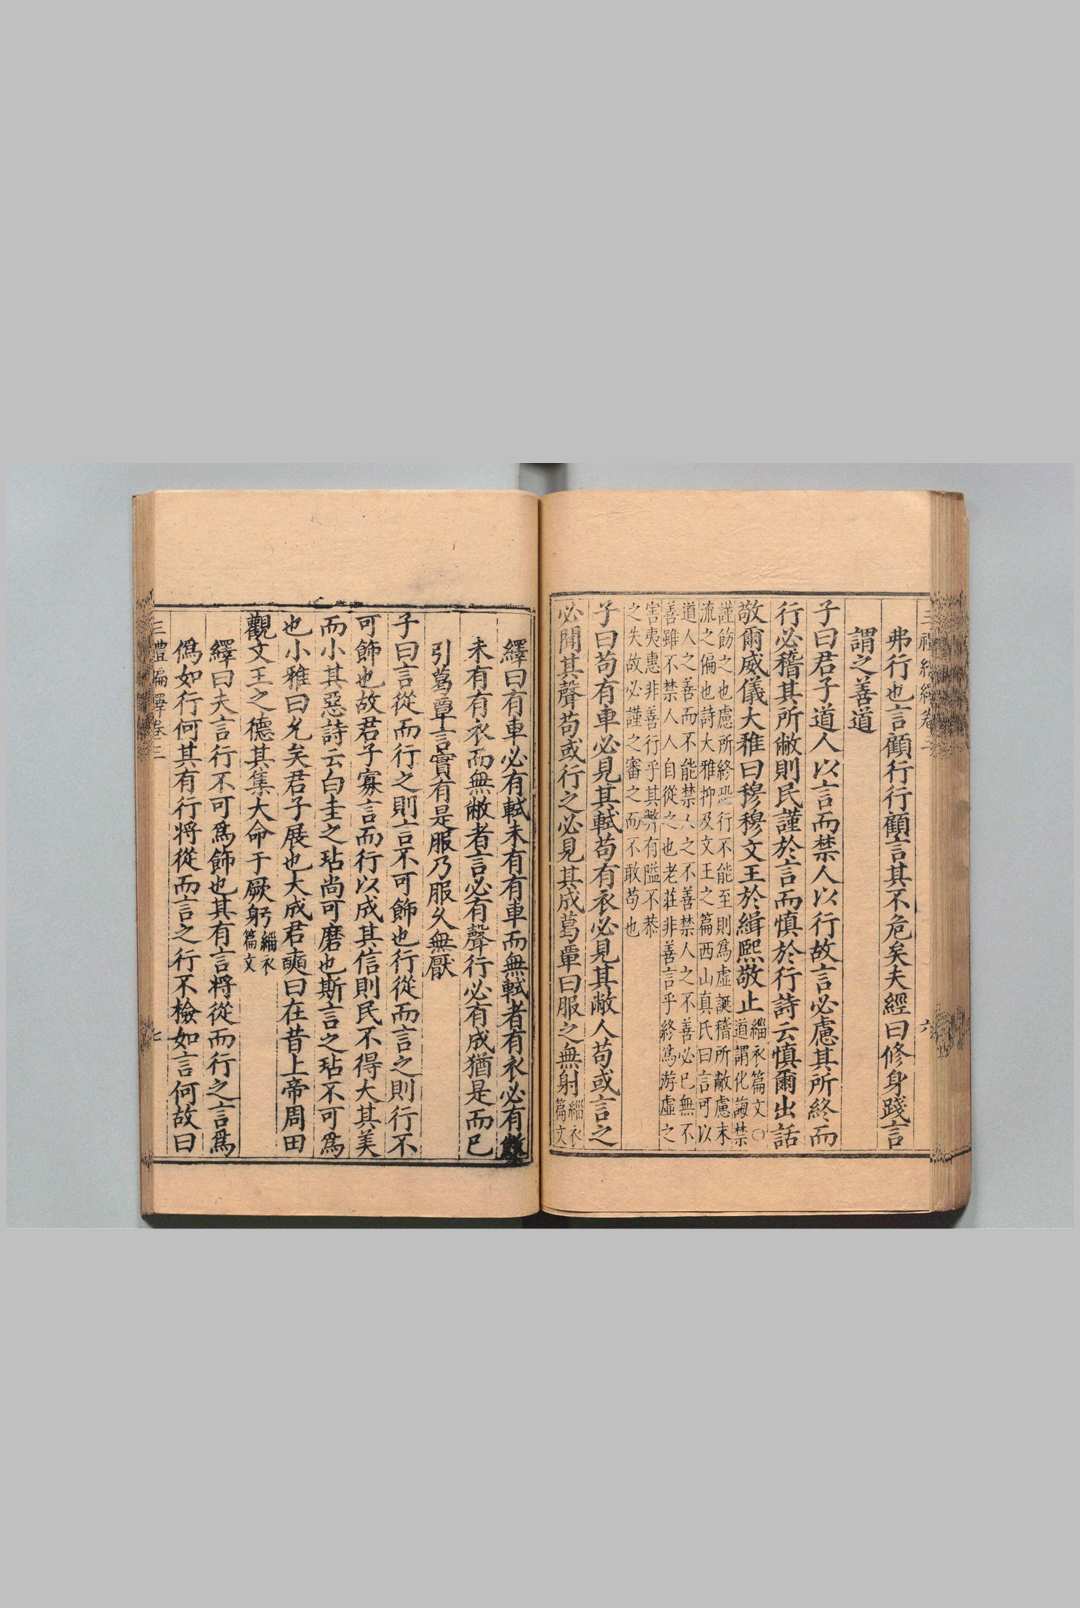 弗行也言顧行行顧言其不危矣夫經曰修身踐言
謂之善道
子曰君子道人以言而禁人以行故言必慮其所終而
行必稽其所敝則民謹於言而慎於行詩云慎爾出話
敬爾威儀大雅曰穆穆文王於緝熙敬止
緇衣篇文○
道謂化誨禁
謹飭之也慮所終恐行不能至則為虛誕稽所敝慮末
流之偏也詩大雅抑及文王之篇西山真氏曰言可以
道人之善而不能禁人之不善禁人之不善必己無不
善雖不禁人人自從之也老莊非善言乎終為游虛之
害夷惠非善行乎其弊有隘不恭
之失故必謹之審之而不敢苟也
子曰苟有車必見其軾苟有衣必見其敝人苟或言之
必聞其聲苟或行之必見其成葛覃曰服之無射
緇衣
篇文
六
繹曰有車必有軾未有有車而無軾者有衣必有敝
未有有衣而無敝者言必有聲行必有成猶是而已
引葛覃言實有是服乃服久無厭
子曰言從而行之則言不可飾也行從而言之則行不
可飾也故君子寡言而行以成其信則民不得大其美
而小其惡詩云白圭之玷尚可磨也斯言之玷不可為
也小雅曰允矣君子展也大成君奭曰在昔上帝周田
觀文王之德其集大命于厥躬
緇衣
篇文
繹曰夫言行不可為飾也其有言將從而行之言為
偽如行何其有行將從而言之行不檢如言何故曰
三禮編繹卷三
七